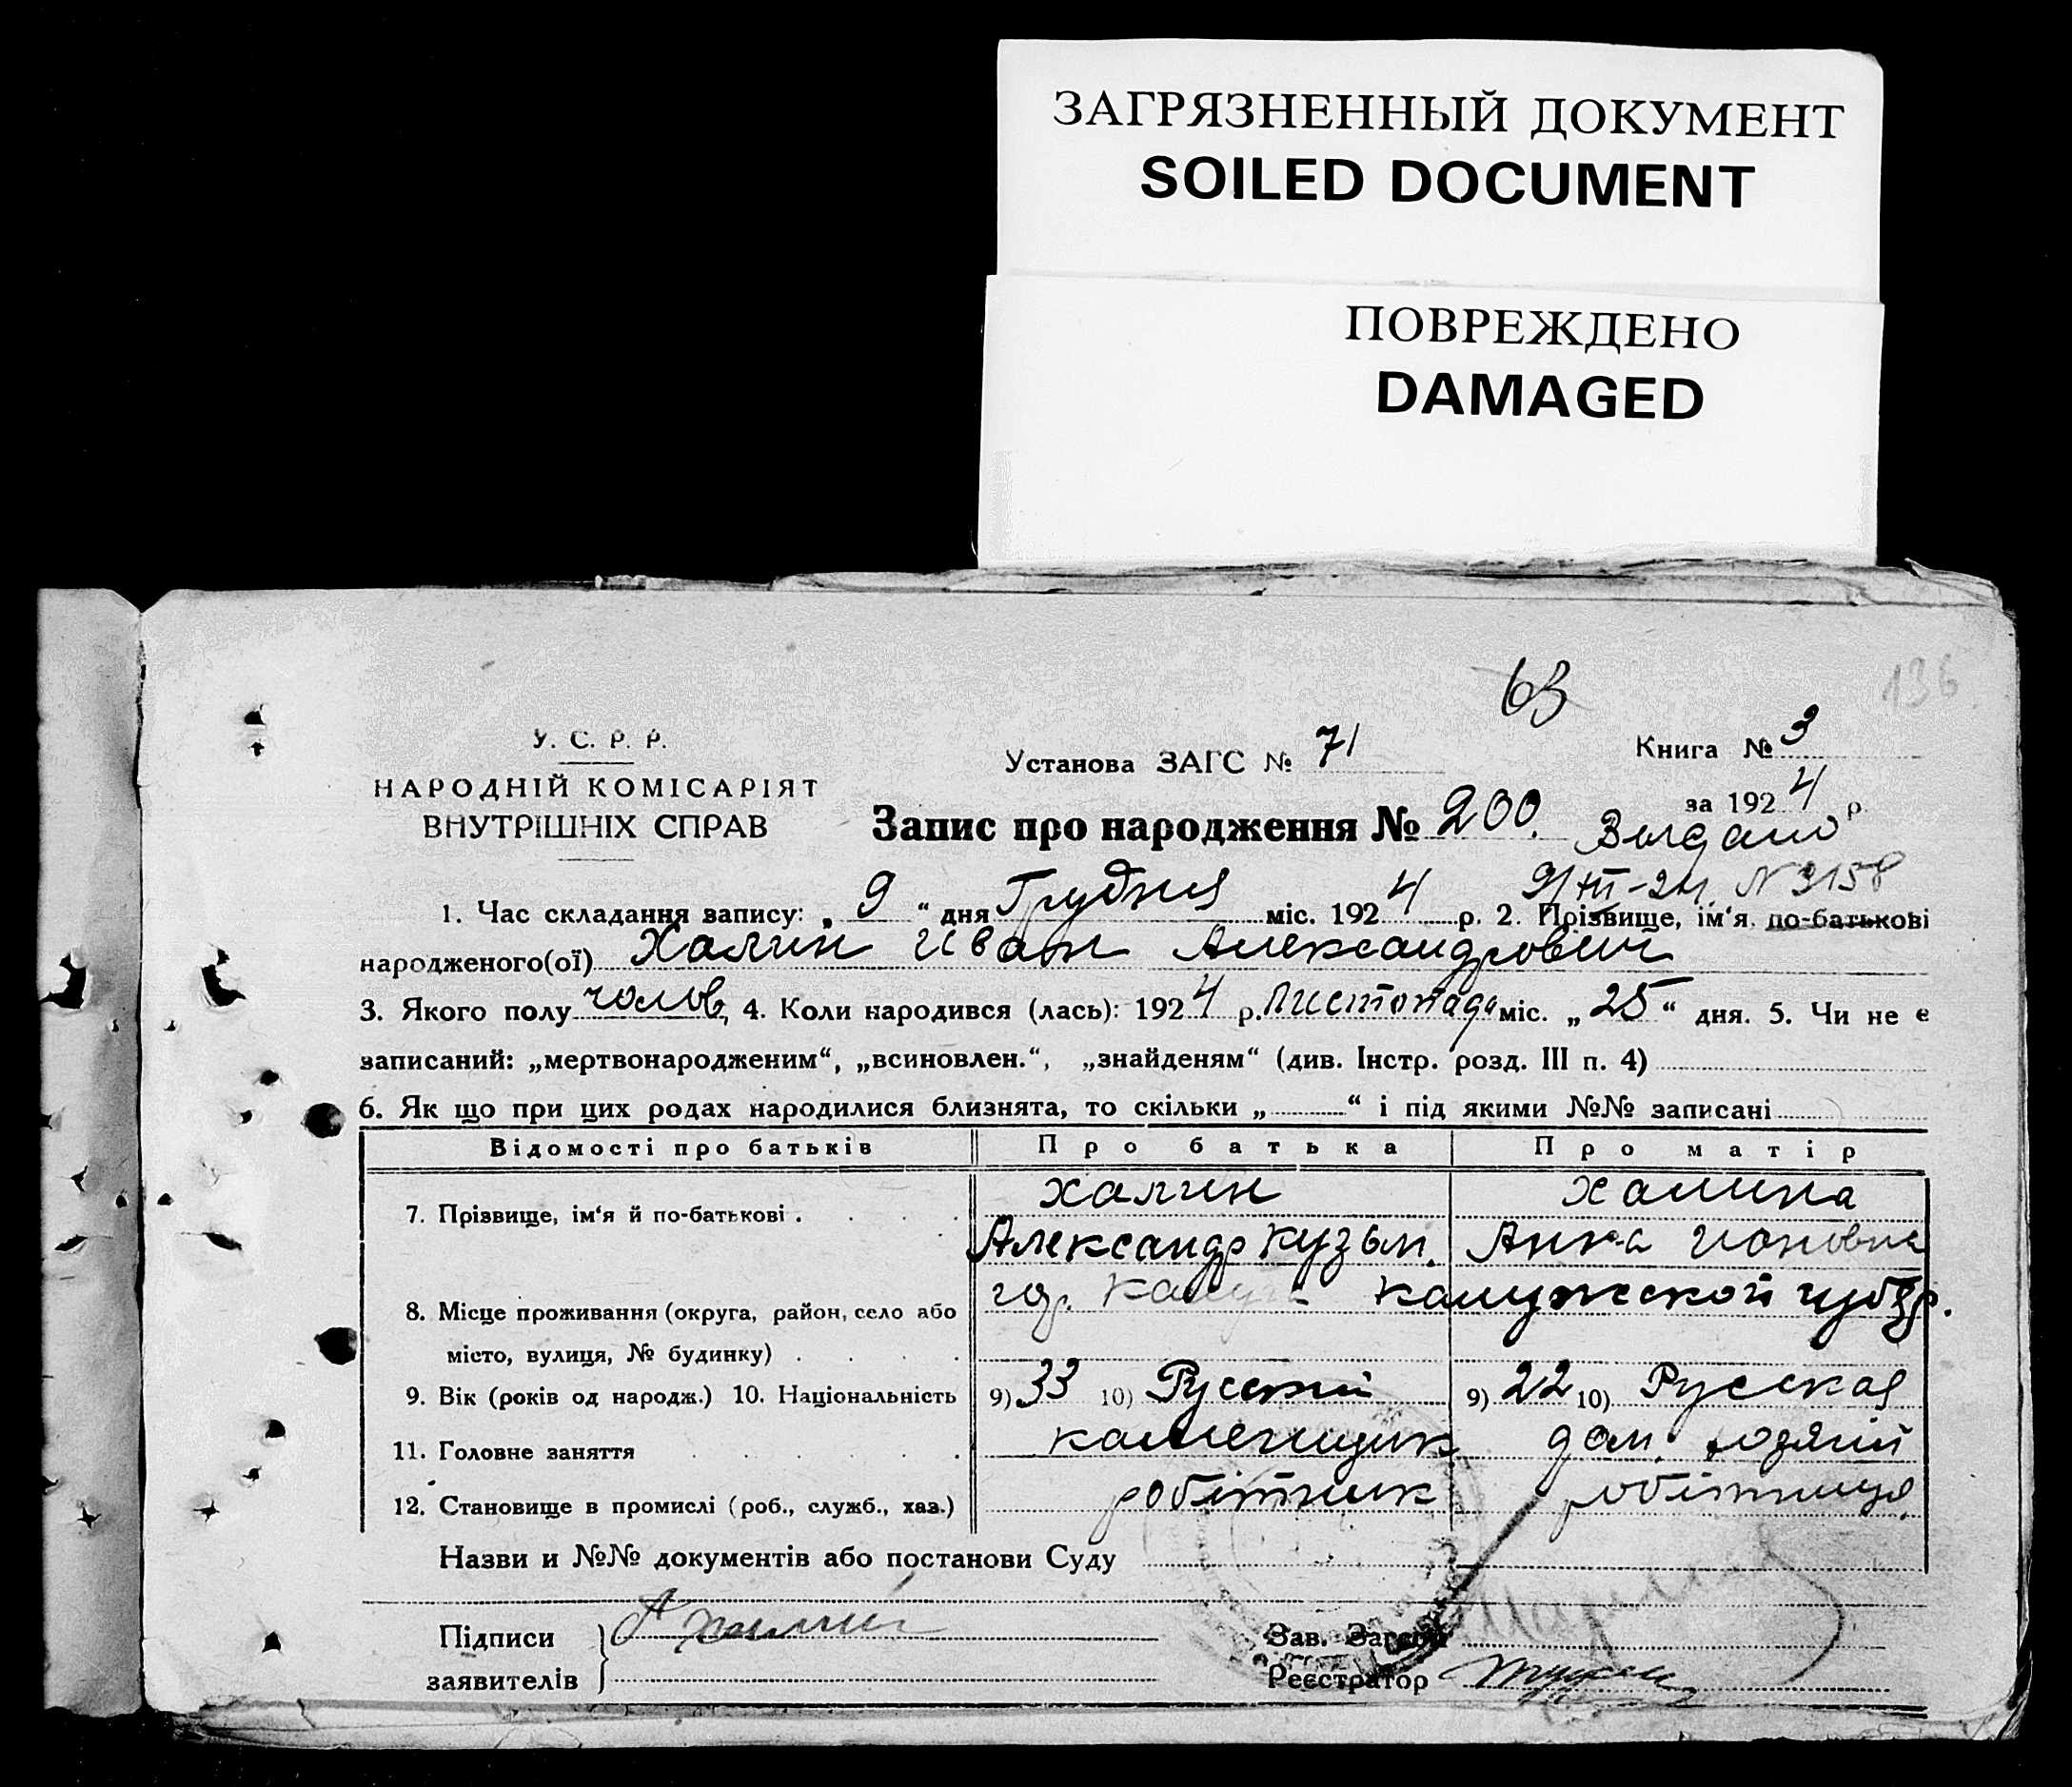 ЗАГРЯЗНЕННЫЙ ДОКУМЕНТ
SOILED DOCUMENT
ПОВРЕЖДЕНО
DAMAGED
63
136
У. С. Р. Р.
НАРОДНІЙ КОМІСАРІЯТ
ВНУТРІШНІХ СПРАВ
Установа ЗАГС № 71
Книга № 3
за 1924 р.
Запис про народження № 200.
Выдано
9/XII-24. N 3158
1. Час складання запису: „ 9 “ дня Грудня міс. 1924 р. 2. Прізвище, ім‘я, по-батькові
народженого(ої) Халин Иван Александрович
3. Якого полу чолов, 4. Коли народився (лась): 1924 р. Листопада міс. „ 25 “ дня. 5. Чи не є
записаний: „мертвонародженим“, „всиновлен.“, „знайденям“ (див. Інстр. розд. III п. 4)
6. Як що при цих родах народилися близнята, то скільки „ “ і під якими №№ записані
Відомості про батьків Про батька Про матір
7. Прізвище, ім‘я й по-батькові . Халин Халина
Александр Кузьм. Анна Ионовна
8. Місце проживання (округа, район, село або гор. Калуга Калужской губ.
місто, вулиця, № будинку)
9. Вік (років од народж.) 10. Національність 9) 33 10) Русский 9) 22 10) Русская
11. Головне заняття каменщик дом.
12. Становище в промислі (роб., служб., хаз.) робітник робітниця
Назви и №№ документів або постанови Суду
Підписи А Халин
заявителів
Зав. Загсом
Реєстратор